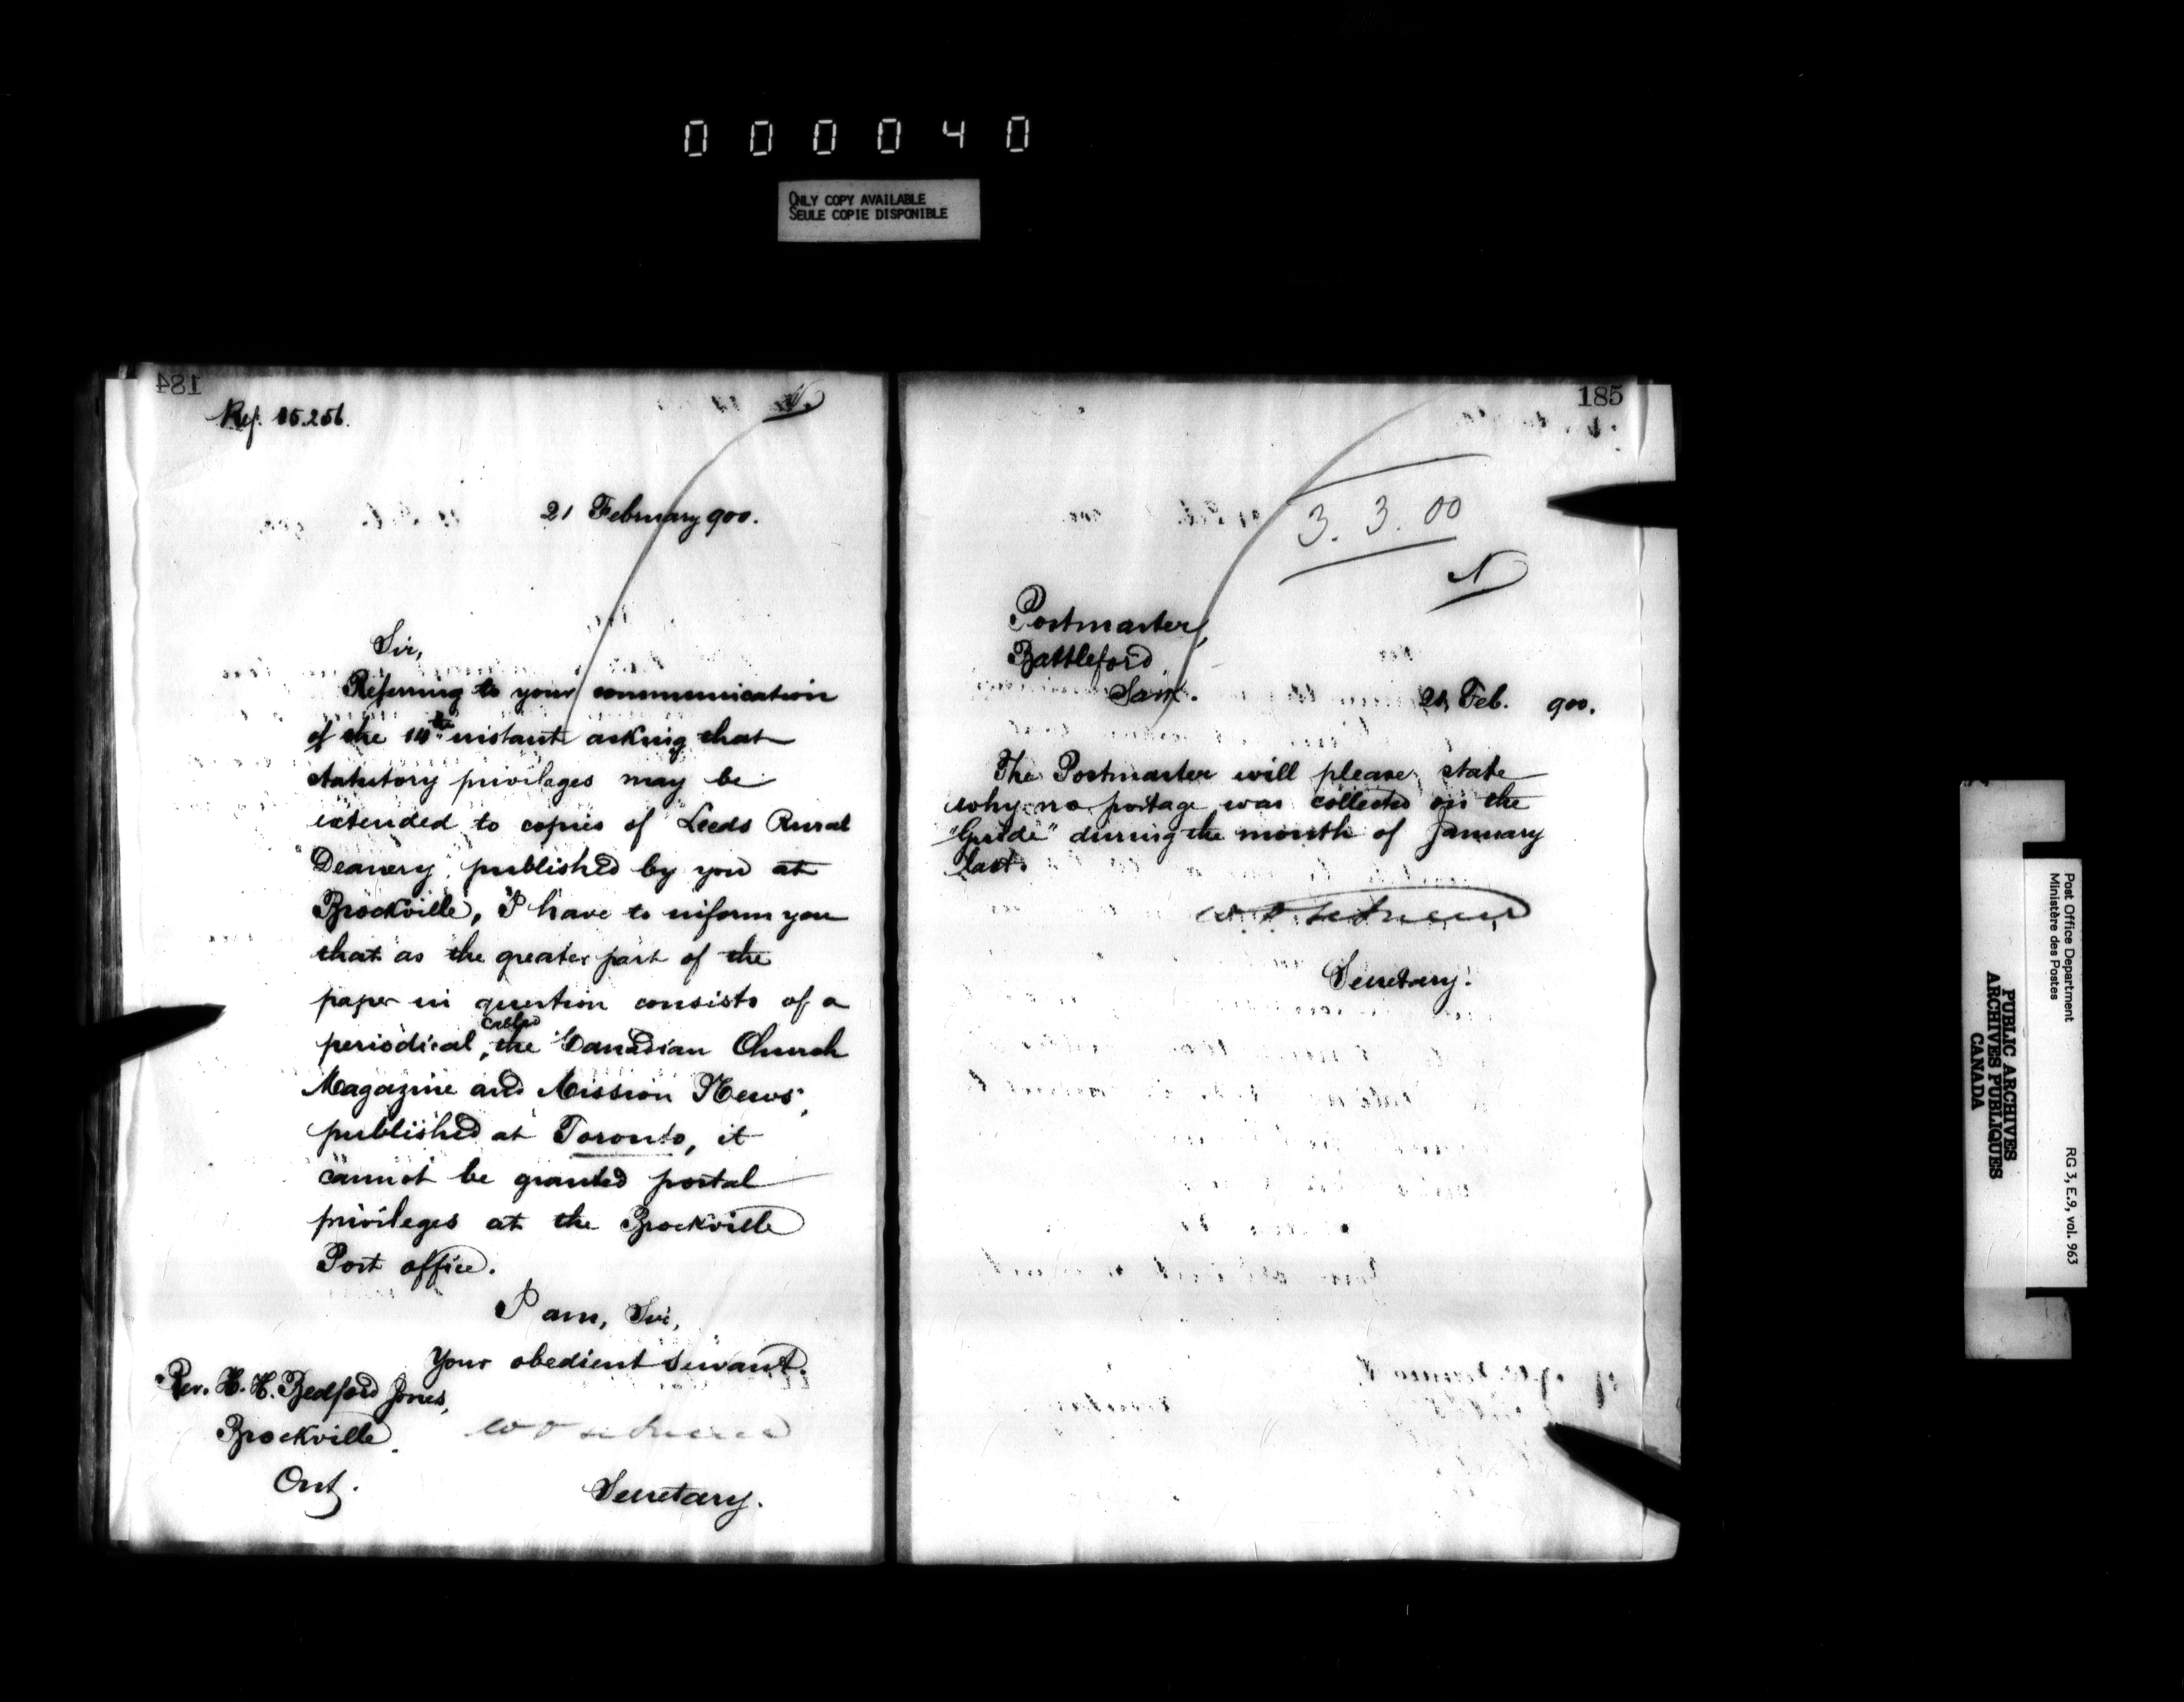 000040
ONLY COPY AVAILABLE
SEULE COPIE DISPONIBLE
184
Ref. 15.256.
N.
21 February 900.
Sir,
Referring to your communication
of the 14th instant asking that
statutory privileges may be
extended to copies of "Leeds Rural
Deanery" published by you at
Brockville, I have to inform you
that as the greater part of the
paper in question consists of a
periodical, called the "Canadian Church
Magazine and Mission News",
published at Toronto, it
cannot be granted postal
privileges at the Brockville
Post office.
I am, Sir,
Your obedient servant.
Rev. H. H. Bedford Jones,
Brockville.
Ont.
Secretary.
185
3.3.00
N
Postmaster,
Battleford
Sask.
21 Feb. 900.
The Postmaster will please state
why no postage was collected on the
"Guide" during the month of January
last.
Secretary.
Post Office Department
Ministère des Postes
RG 3, E.9, vol. 963
PUBLIC ARCHIVES
ARCHIVES PUBLIQUES
CANADA